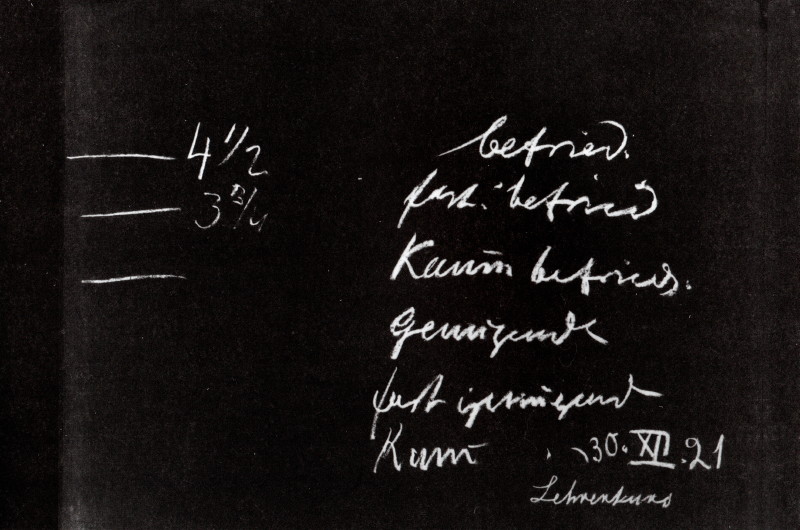 4 1/2 befried.
3 3/4 fast. befried
Kaum befried.
Genügend
fast genügend
Kaum 30. XII. 21
Lehrerkurs